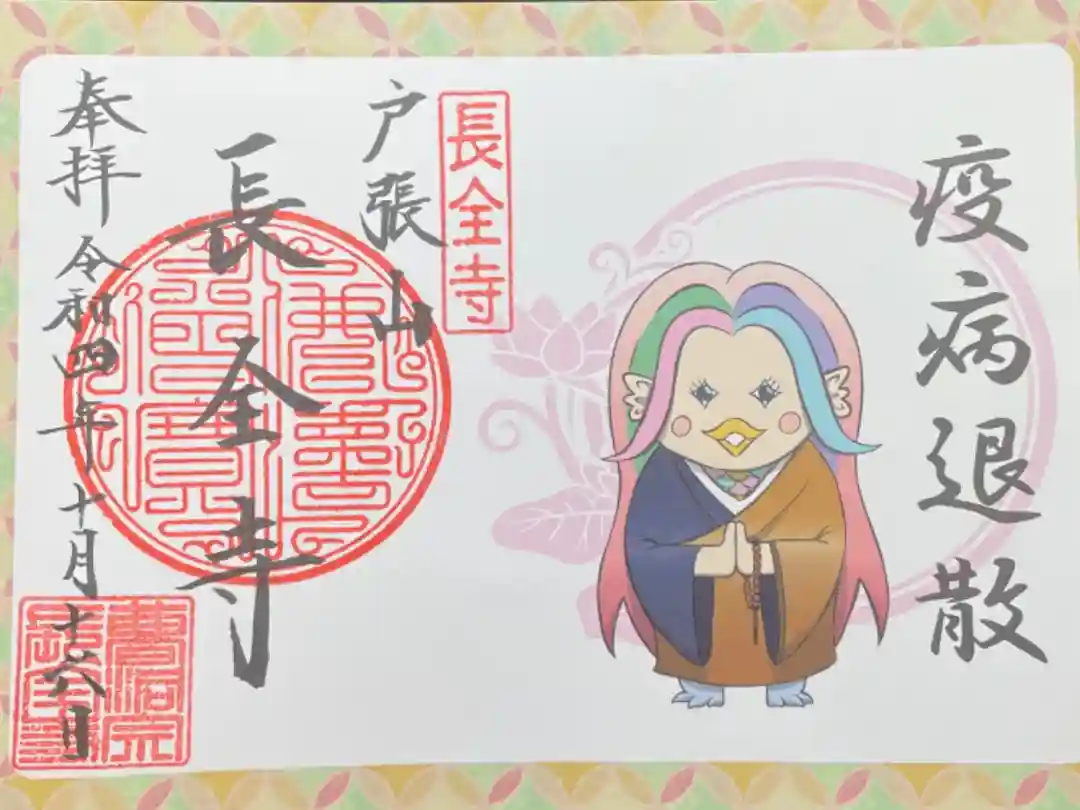 疫病退散
長全寺
戸張山
長全寺
奉拝 令和四年十月十六日
曹洞宗
長全寺